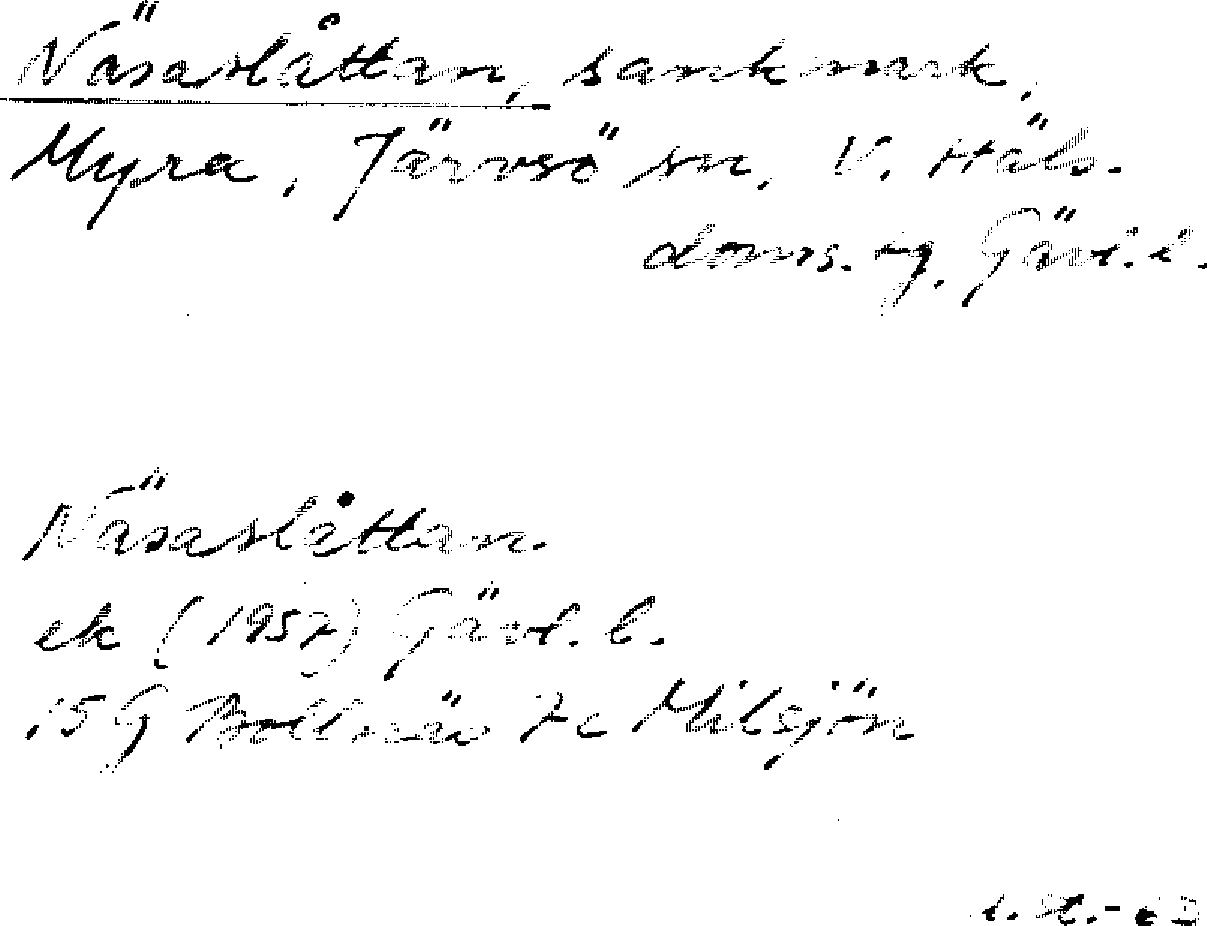 Näsaslåttan, sankmark,
Myra, Järvsö sn, V. Häls.
doms. ag, Gävl. l.
Näsaslåttan.
ek (1957) Gävl. l.
15 G Bollnäs 7c Milsjön